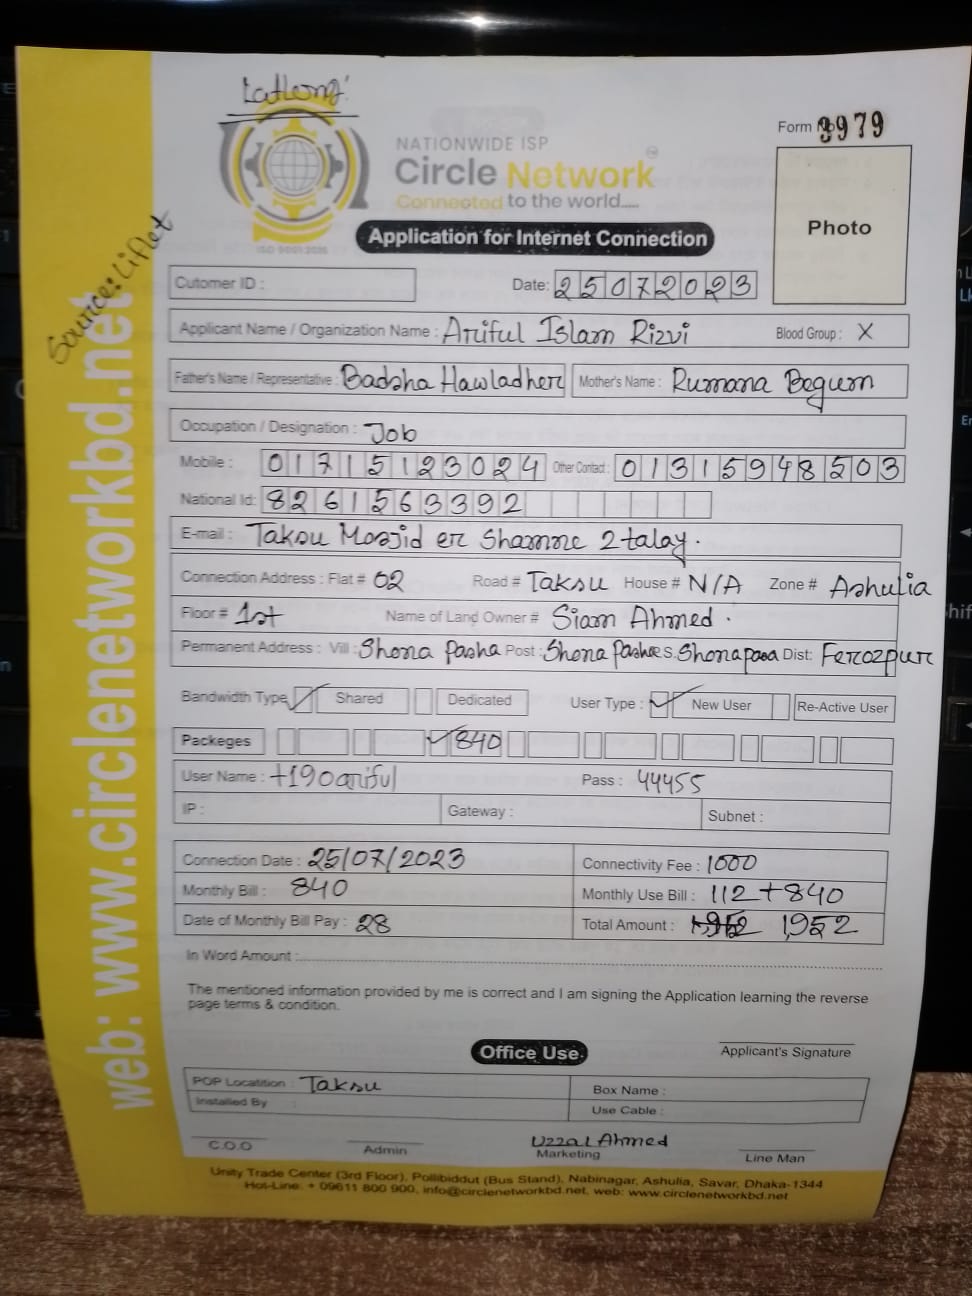 Form No 3979
NATIONWIDE ISP
Circle Network
Connected to the world.....
Photo
Application for Internet Connection
Source: Liflet
Cutomer ID :
Date: 25072023
Applicant Name / Organization Name : Ariful Islam Rizvi Blood Group : X
Father's Name / Representative : Badsha Hawladher Mother's Name : Rumana Begum
Occupation / Designation : Job
Mobile : 01715123024 Other Contact : 01315948503
National Id: 8261563392
E-mail : Taksu Masjid er Shamne 2 talay.
Connection Address : Flat # 02 Road # Taksu House # N/A Zone # Ashulia
Floor # 1st Name of Land Owner # Siam Ahmed .
Permanent Address : Vill : Shona Pasha Post : Shona Pasha P.S. Shonapasa Dist: Ferozpur
Bandwidth Type Shared Dedicated User Type : New User Re-Active User
Packeges 840
User Name : +190ariful Pass : 44455
IP : Gateway : Subnet :
Connection Date : 25/07/2023 Connectivity Fee : 1000
Monthly Bill : 840 Monthly Use Bill : 112+840
Date of Monthly Bill Pay : 28 Total Amount : 1,952
In Word Amount :
The mentioned information provided by me is correct and I am signing the Application learning the reverse
page terms & condition.
Office Use
Applicant's Signature
POP Locatition : Taksu Box Name :
Installed By : Use Cable :
C.O.O Admin Uzzal Ahmed
Marketing Line Man
Unity Trade Center (3rd Floor), Pollibiddut (Bus Stand), Nabinagar, Ashulia, Savar, Dhaka-1344
Hot-Line: + 09611 800 900, info@circlenetworkbd.net, web: www.circlenetworkbd.net
web: www.circlenetworkbd.net